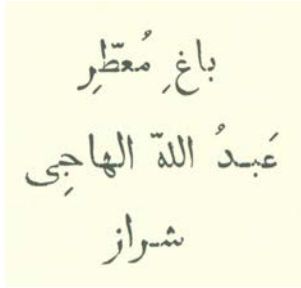 باغِ مُعطّرِ
عَبدُ اللهّ الهاجِى
شراز